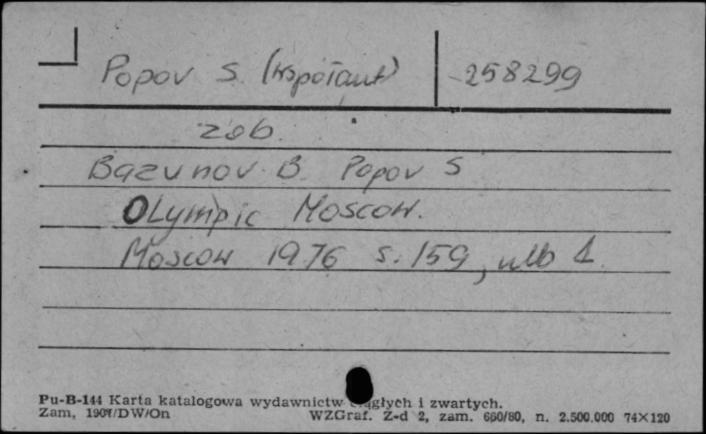 Popov S. (współaut) 258299
zob.
Bazunov B. Popov S
Olympic Moscow.
Moscow 1976 s. 159, nlb 1.
Pu-B-144 Karta katalogowa wydawnictw ciągłych i zwartych.
Zam, /DW/On WZGraf. Z-d 2, zam. 660/80, n. 2.500.000 74×120